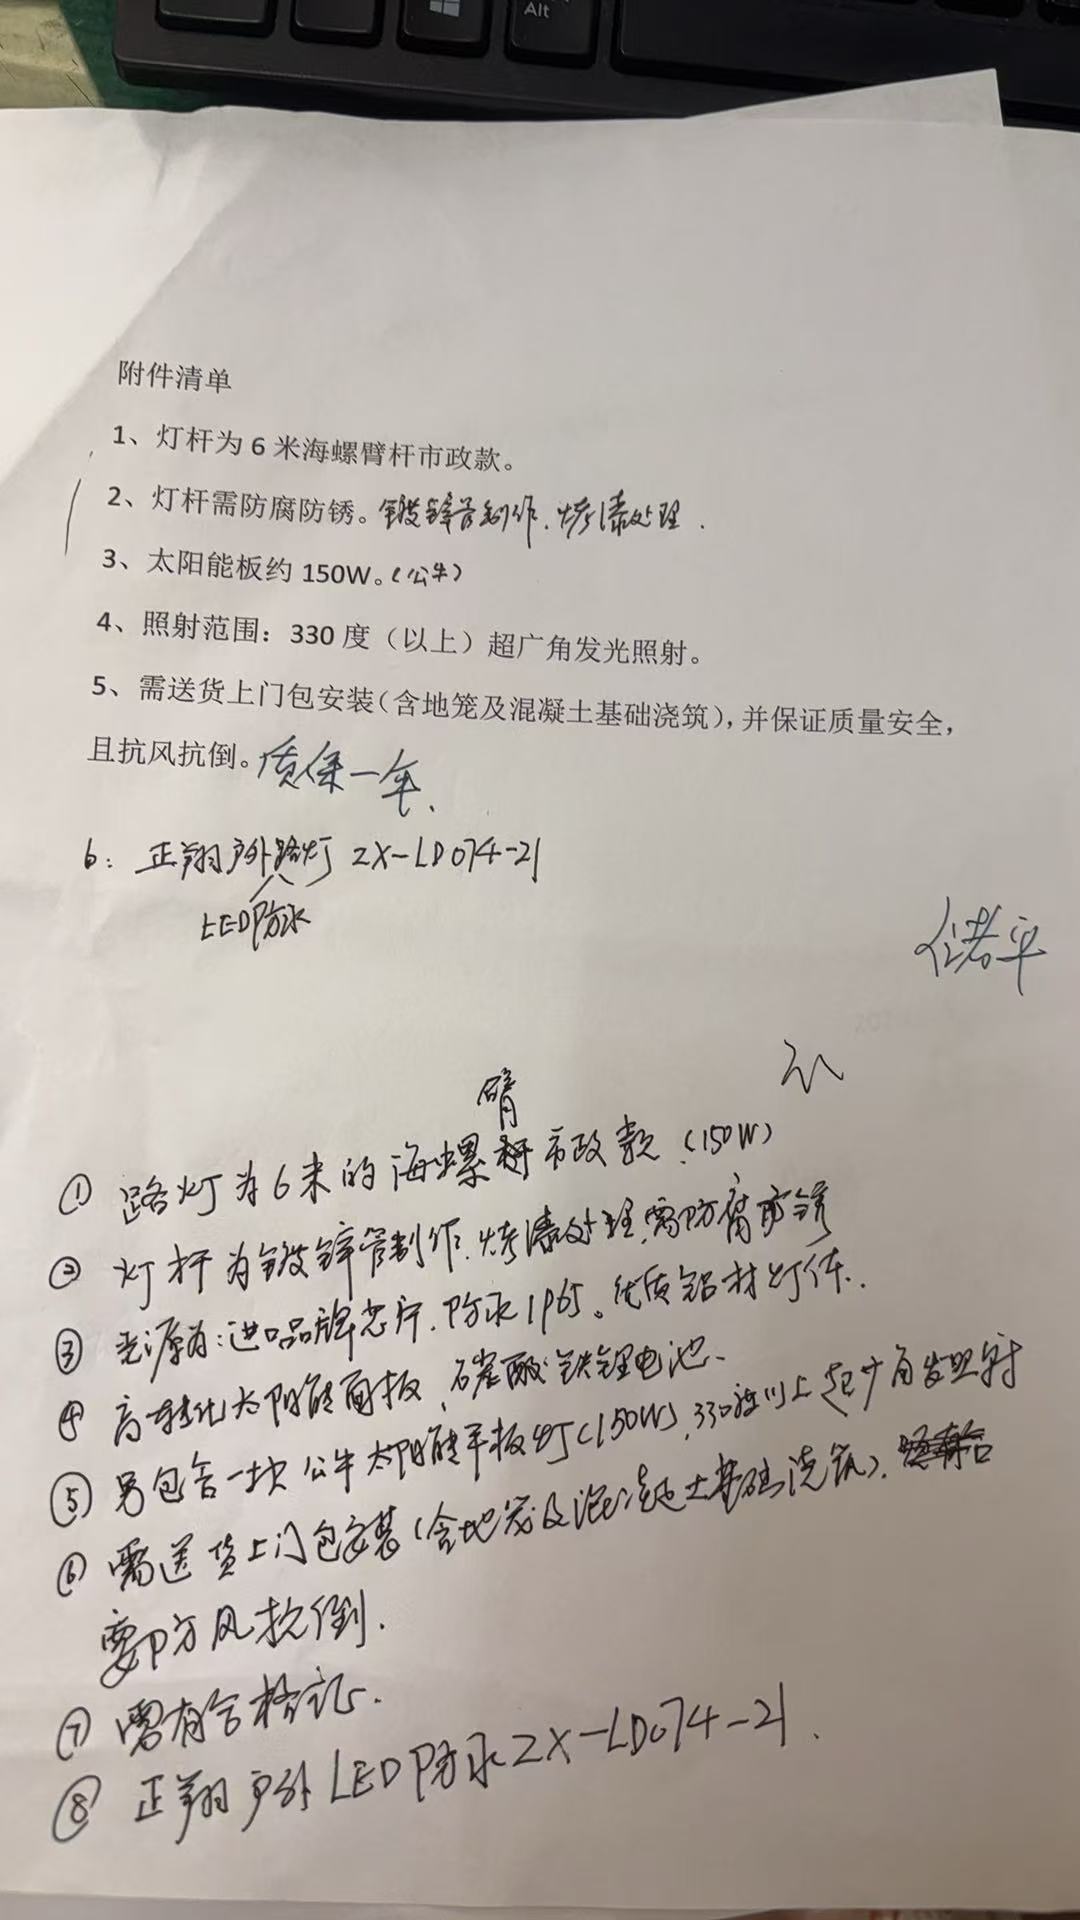 Alt
附件清单
1、灯杆为 6 米海螺臂杆市政款。
2、灯杆需防腐防锈。镀锌管制作、烤漆处理.
3、太阳能板约 150W。(公牛)
4、照射范围：330 度（以上）超广角发光照射。
5、需送货上门包安装(含地笼及混凝土基础浇筑)，并保证质量安全，
且抗风抗倒。质保一年.
6: 正翔户外路灯 ZX-LD074-21
LED防水
臂
① 路灯为6米的海螺杆市政款.(150W)
② 灯杆为镀锌管制作.烤漆处理,需防腐防锈
③ 光源为:进口品牌芯片.防水IP65。优质铝材灯体.
④ 高转化太阳能面板、磷酸铁锂电池.
⑤ 另包含一块公牛太阳能平板灯(150W),330度以上超广角发照射
⑥ 需送货上门包安装(含地笼及混凝土基础浇筑).
要防风抗倒.
⑦ 需有合格证.
⑧ 正翔户外LED防水ZX-LD074-21.